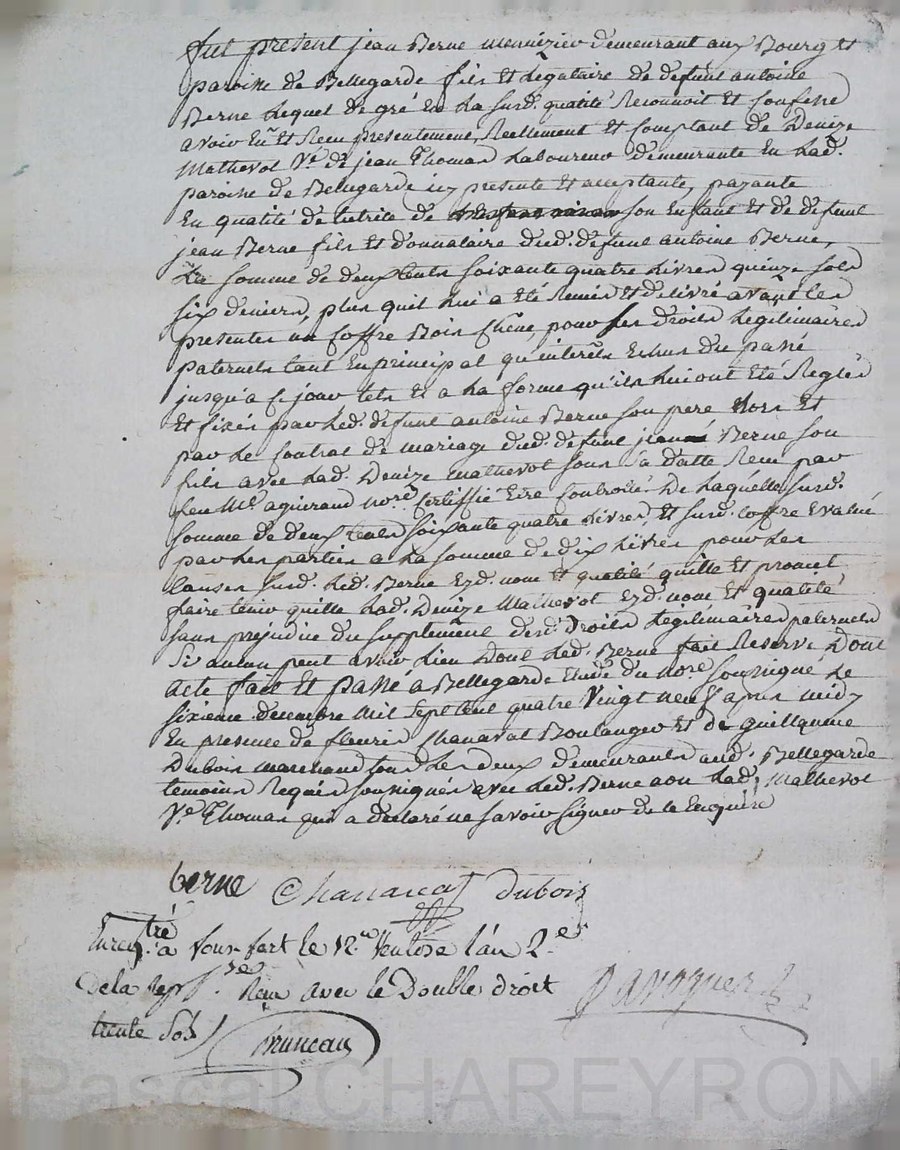 fut present jean Berne mennizier demeurant aux Bourg et
paroisse de Bellegarde fils et Légataire de defunt antoine
Berne Lequel de gré en La susd. qualité Reconnoit et Confesse
avoir Eu et Recu presentement, Reellement et Comptant de Denize
Mathevot Ve. de jean Thomas Laboureur demeurante En Lad.
paroisse de Bellegarde icy presente et acceptante, payante
En qualité de tutrice de son Enfant et de defunt
jean Berne fils et donnataire dud. defunt antoine Berne,
La somme de deux Cents soixante quatre Livres quinze sols
six deniers, plus quil Lui a été Remis et delivré avant Les
presentes un Coffre Bois Chêne, pour Ses droits Legitimaires
paternels tant En principal qu'interêts Echus du passé
jusqu'a Ce jour tels et a La forme qu'ils Lui ont été Reglés
Et fixés par Led. defunt antoine Berne son pere Lors Et
par Le Contrat de mariage dud. defunt jean Berne son
fils avec Lad. Denize Mathevot sous sa datte Recu par
feu Me aguiraud nore. Certiffié Etre Controllé. De Laquelle susd.
somme de deux Cents soixante quatre Livres, et susd. Coffre Evalué
par Les parties a La somme de dix Livres pour Les
Causes susd. Led. Berne Ezd. nom et qualité quitte Et promet
faire tenir quitte Lad. Denize Mathevot Ezd. nom et qualité
sans prejudice du supplement desd. Droits Legitimaires paternels
Si aucun peut avoir Lieu dont Led. Berne fait Reserve Dont
acte fait Et passé a Bellegarde Etude du nore. soussigné Le
sixieme decembre mil sept Cent quatre Vingt neuf apres midy
En presence de fleuris Chanavat Boulanger et de Guillaume
Dubois marchand tous Les deux demeurants aud. Bellegarde
temoins Requis soussignés avec Led. Berne non Lad. Mathevot
Ve. Thomas qui a declaré ne savoir signer de ce Enquise
berne Chanavat dubois
Enregtré a fons-fort le 12. Ventose l'an 2.e
dela Rep. Recu avec le Double droit
trente Sols
Bruneau
Pascal CHAREYRON